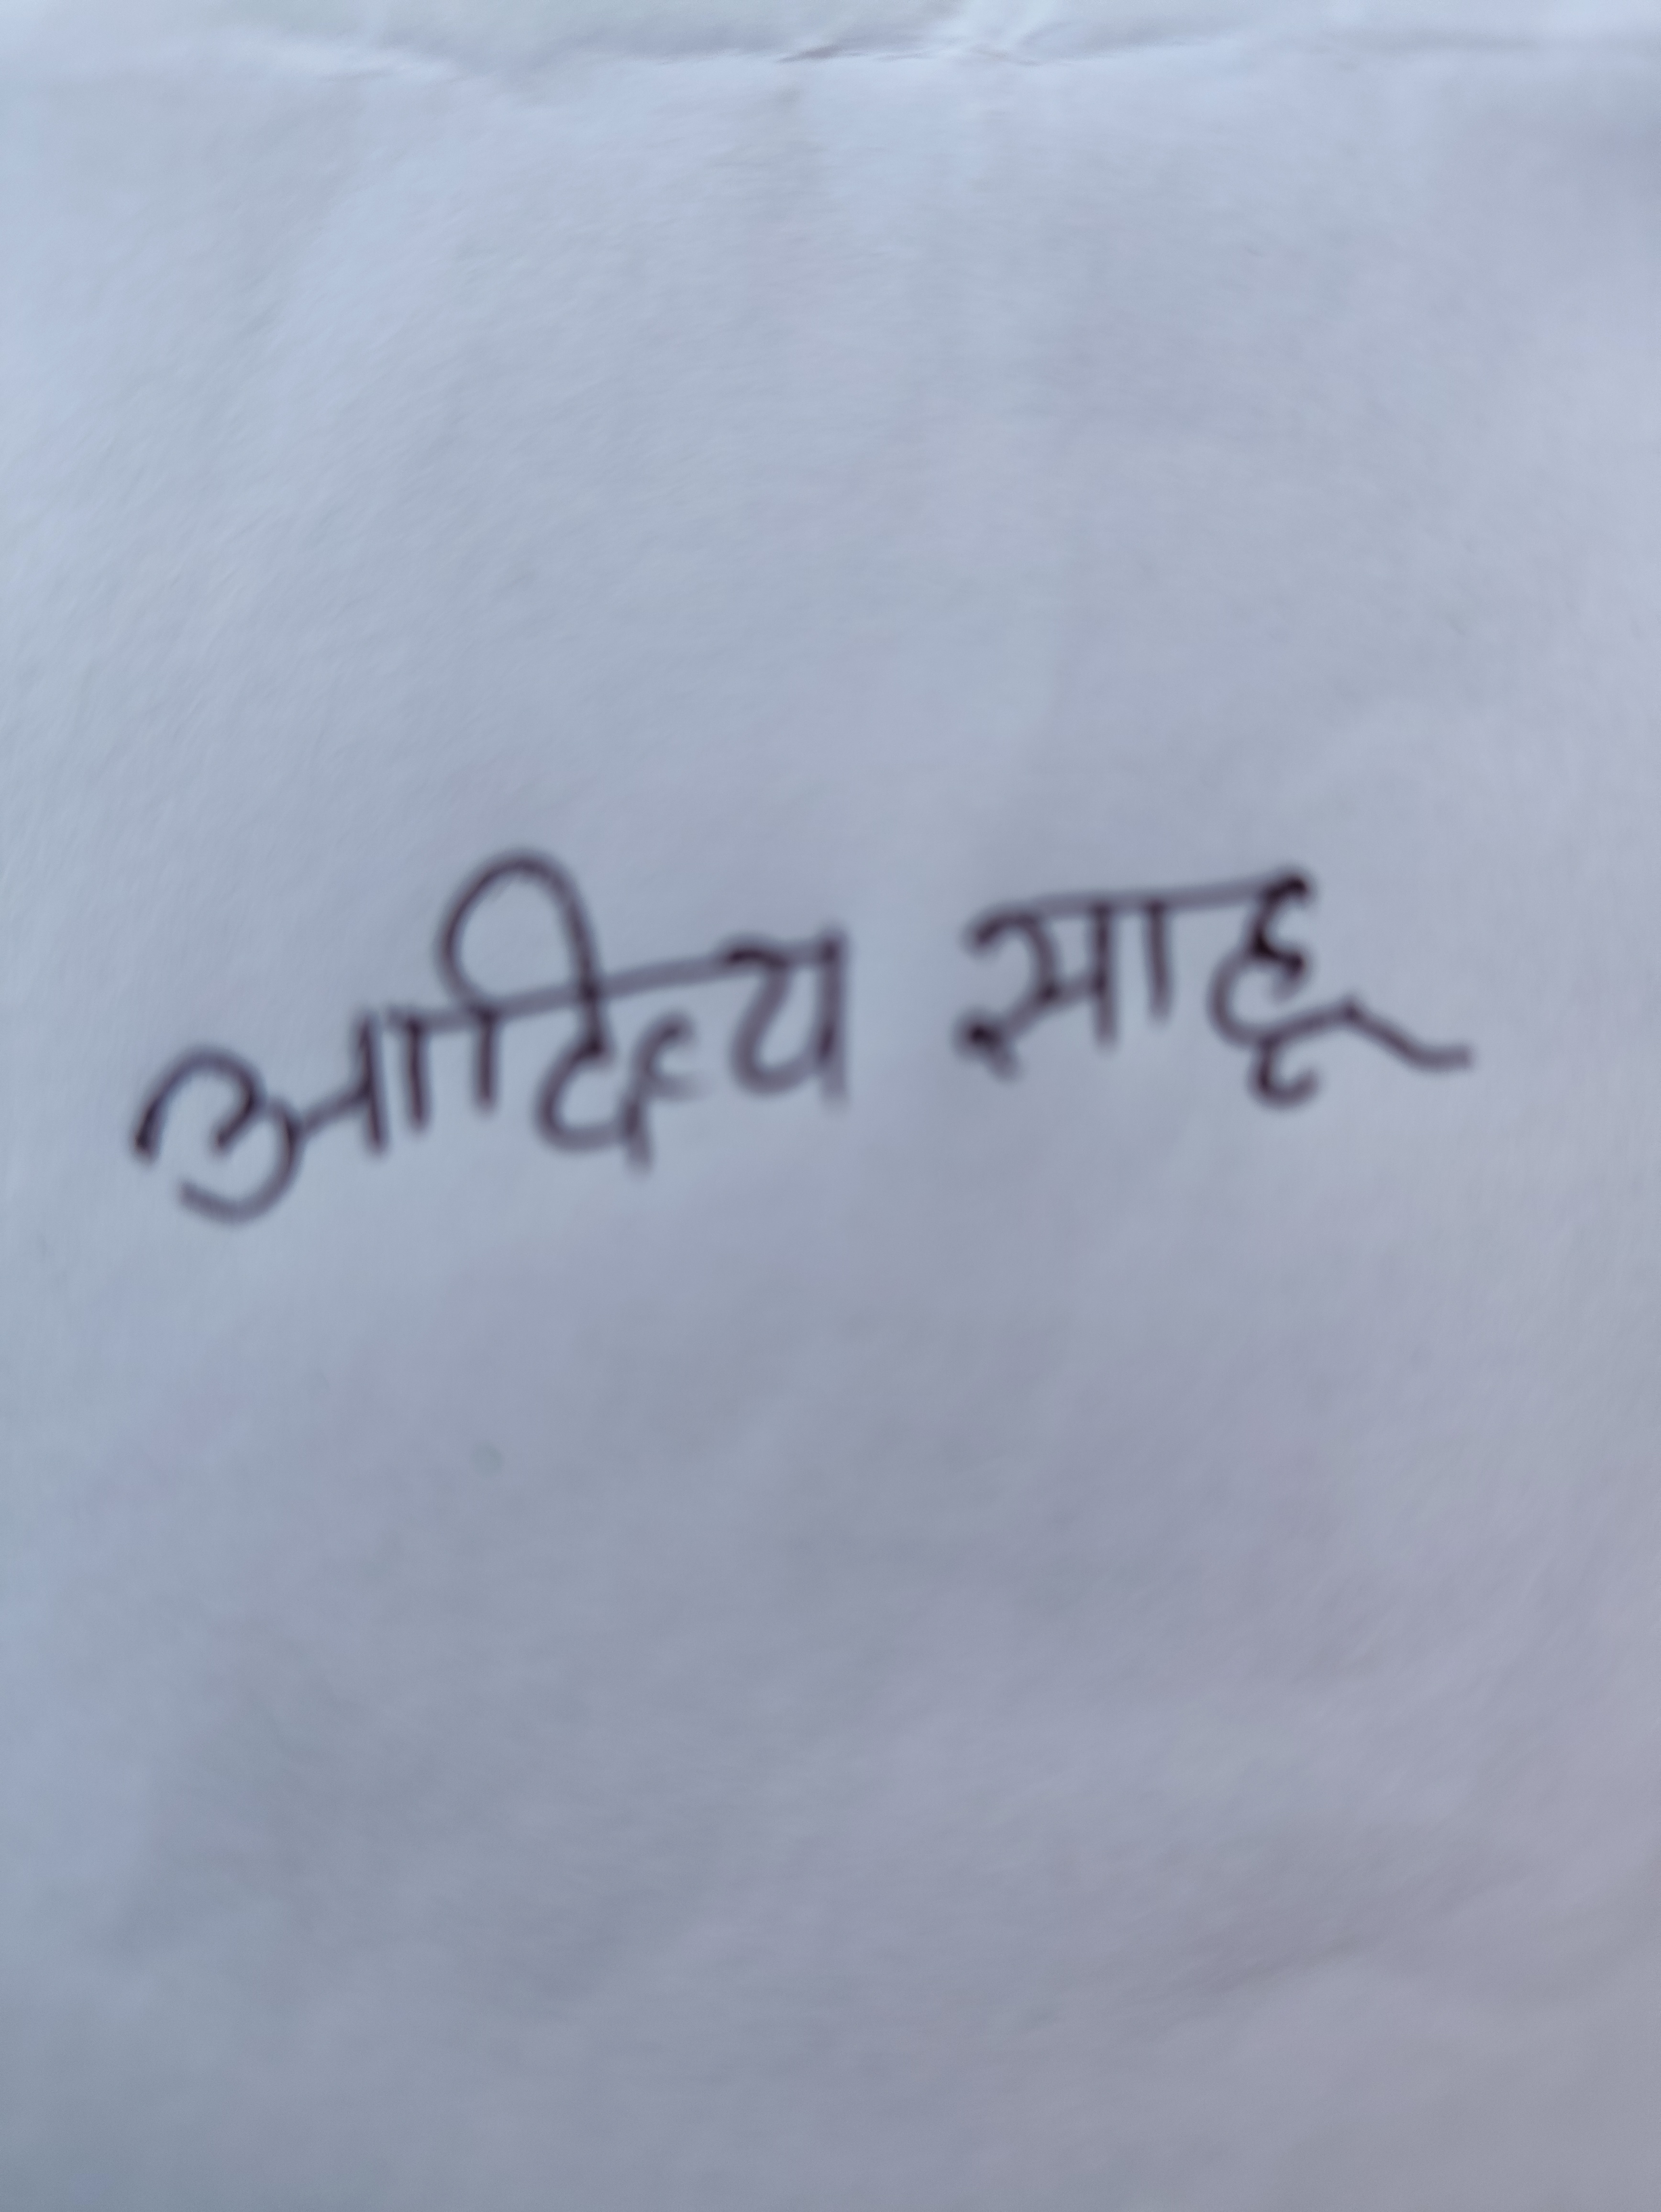 आदित्य साहू